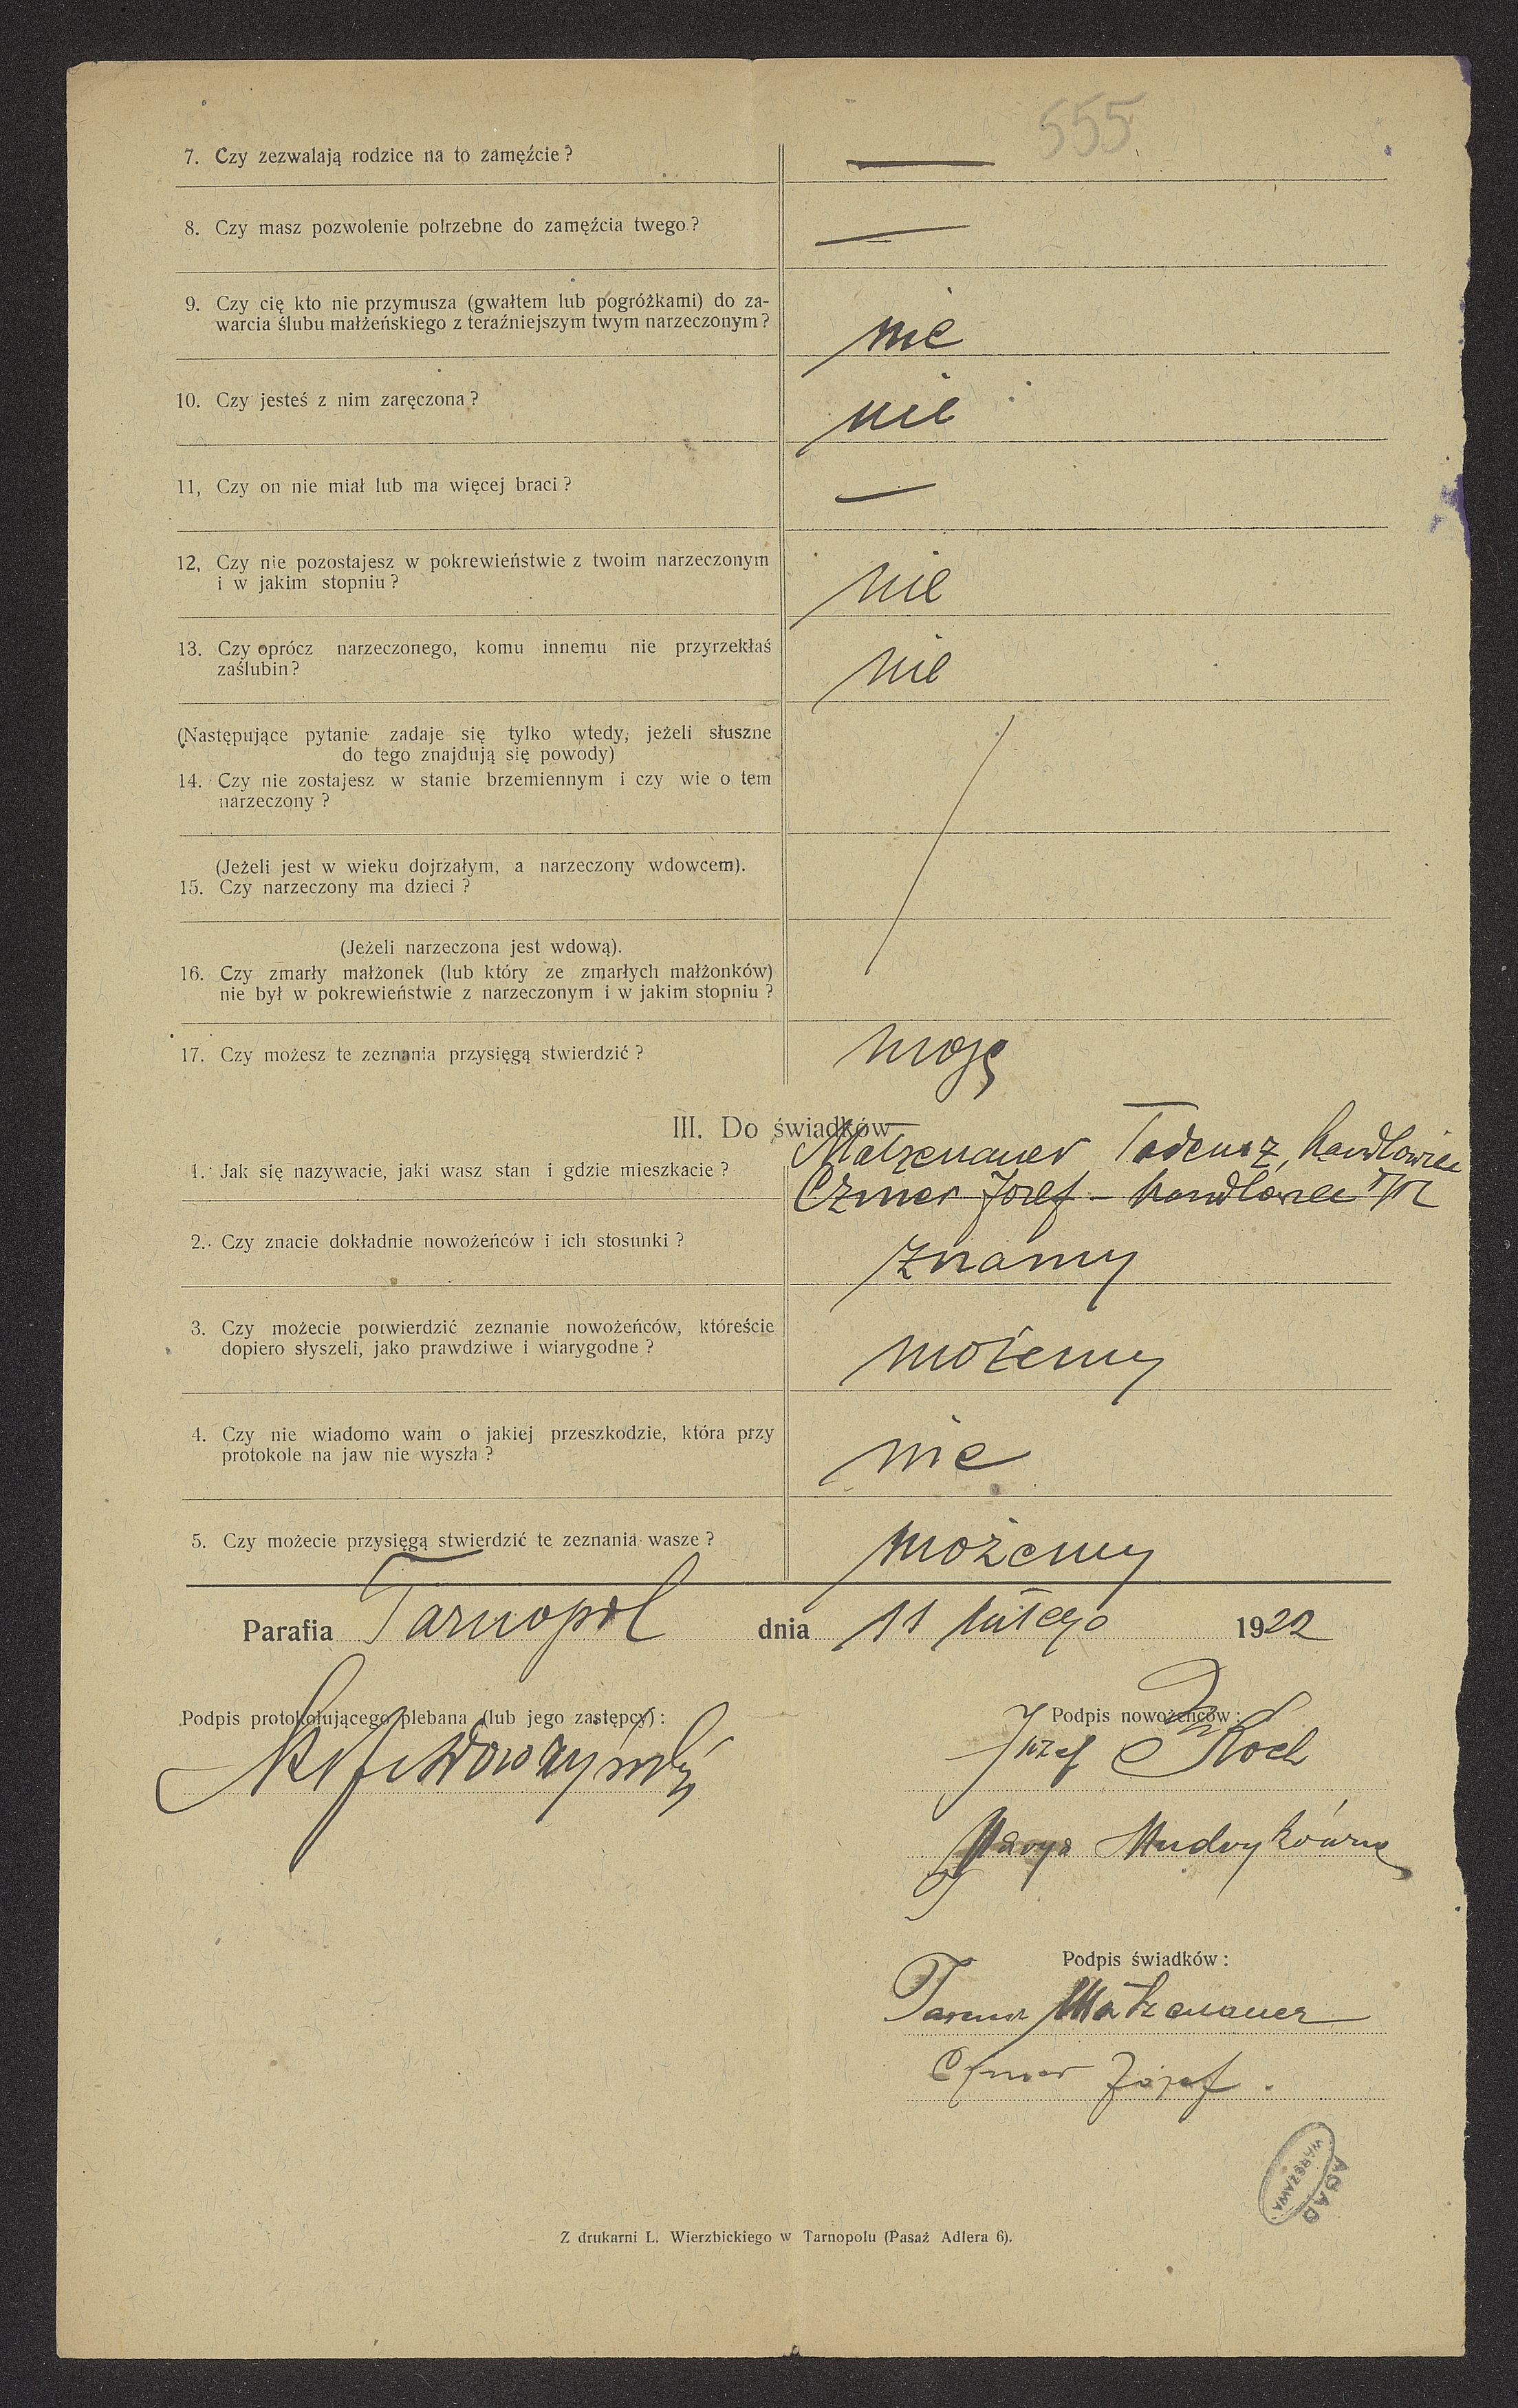 555
7. Czy zezwalają rodzice na to zamęźcie?
8. Czy masz pozwolenie potrzebne do zamęźcia twego?
9. Czy cię kto nie przymusza (gwałtem lub pogróżkami) do za-
warcia ślubu małżeńskiego z teraźniejszym twym narzeczonym?
nie
10. Czy jesteś z nim zaręczona?
nie
11, Czy on nie miał lub ma więcej braci?
12, Czy nie pozostajesz w pokrewieństwie z twoim narzeczonym
i w jakim stopniu?
nie
13. Czy oprócz narzeczonego, komu innemu nie przyrzekłaś
zaślubin?
nie
(Następujące pytanie zadaje się tylko wtedy, jeżeli słuszne
do tego znajdują się powody)
14. Czy nie zostajesz w stanie brzemiennym i czy wie o tem
narzeczony?
(Jeżeli jest w wieku dojrzałym, a narzeczony wdowcem).
15. Czy narzeczony ma dzieci?
(Jeżeli narzeczona jest wdową).
16. Czy zmarły małżonek (lub który ze zmarłych małżonków)
nie był w pokrewieństwie z narzeczonym i w jakim stopniu?
17. Czy możesz te zeznania przysięgą stwierdzić?
mogę
III. Do świadków
1. Jak się nazywacie, jaki wasz stan i gdzie mieszkacie?
Matzenauer Tadeusz, handlowiec
Czmer Józef - handlowiec
2. Czy znacie dokładnie nowożeńców i ich stosunki?
znamy
3. Czy możecie potwierdzić zeznanie nowożeńców, któreście
dopiero słyszeli, jako prawdziwe i wiarygodne?
możemy
4. Czy nie wiadomo wam o jakiej przeszkodzie, która przy
protokole na jaw nie wyszła?
nie
5. Czy możecie przysięgą stwierdzić te zeznania wasze?
możemy
Parafia Tarnopol dnia 11 lutego 1922
Podpis protokołującego plebana (lub jego zastępcy):
Podpis nowożeńców:
Józef Koch
Marya Mudrykówna
Podpis świadków:
Tadeusz Matzenauer
Czmer Józef.
AGAD
WARSZAWA
Z drukarni L. Wierzbickiego w Tarnopolu (Pasaż Adlera 6).